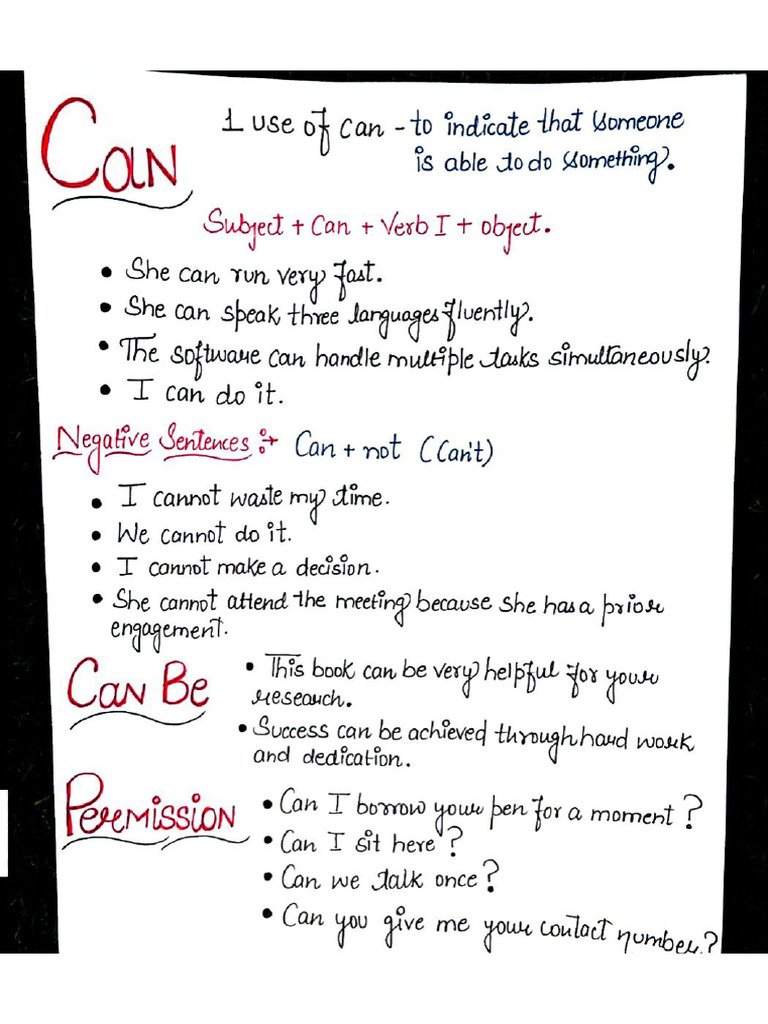 Can
1 use of can - to indicate that someone
is able to do something.
Subject + Can + Verb I + object.
• She can run very fast.
• She can speak three languages fluently.
• The software can handle multiple tasks simultaneously.
• I can do it.
Negative Sentences :→ Can + not (Can't)
• I cannot waste my time.
• We cannot do it.
• I cannot make a decision.
• She cannot attend the meeting because she has a prior
engagement.
Can Be
• This book can be very helpful for your
research.
• Success can be achieved through hard work
and dedication.
Permission
• Can I borrow your pen for a moment?
• Can I sit here?
• Can we talk once?
• Can you give me your contact number?